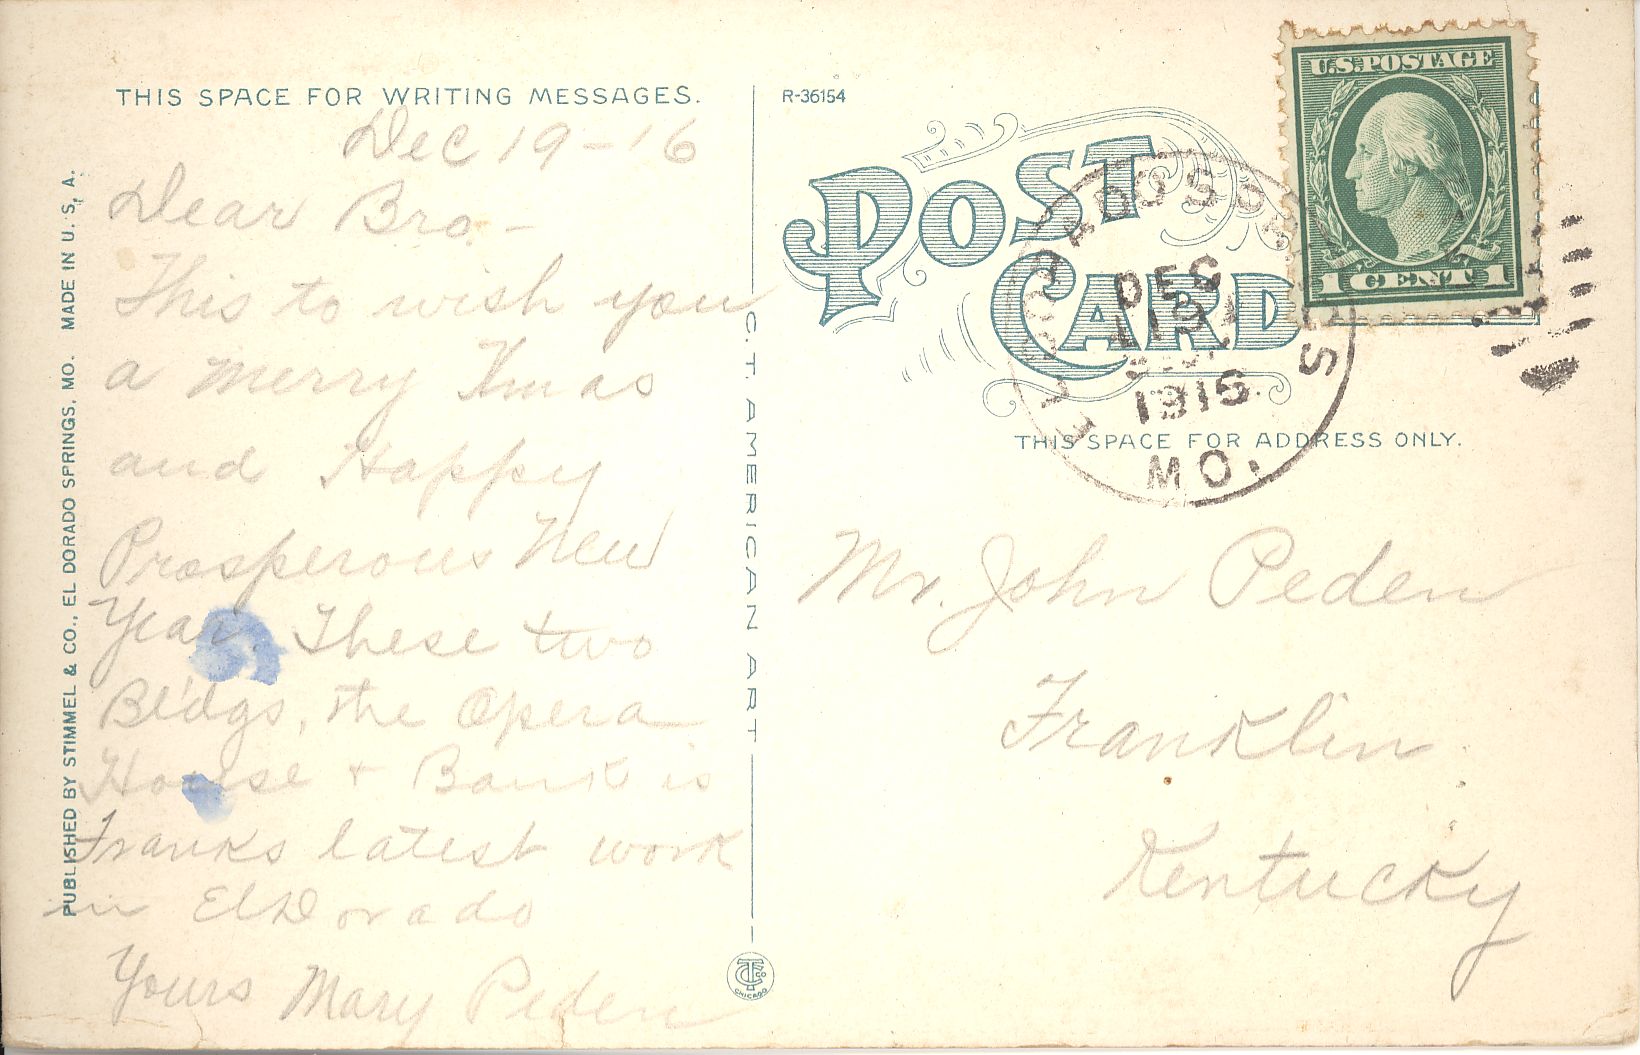 THIS SPACE FOR WRITING MESSAGES.
Dec 19-16
Dear Bro.-
This to wish you
a merry Xmas
and Happy
Prosperous New
Year. These two
Bl'dgs, the Opera
House + Bank is
Franks latest work
in ElDorado
Yours Mary Peden
PUBLISHED BY STIMMEL & CO., EL DORADO SPRINGS, MO. MADE IN U. S. A.
C. T. AMERICAN ART
CHICAGO
R-36154
POST
CARD
U.S. POSTAGE
1 CENT 1
EL DORADO SPRINGS
DEC
19
1916
MO.
THIS SPACE FOR ADDRESS ONLY.
Mr. John Peden
Franklin
Kentucky